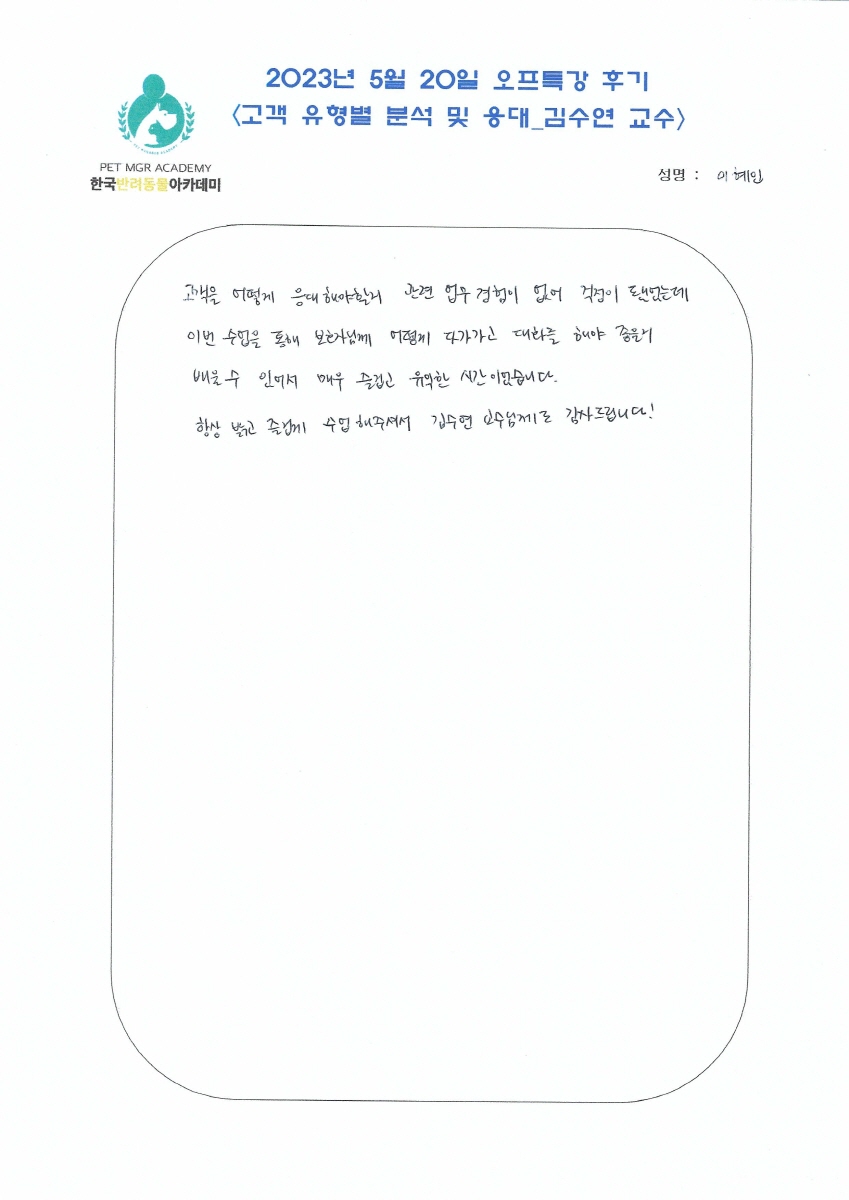 2023년 5월 20일 오프특강 후기
<고객 유형별 분석 및 응대_김수연 교수>
PET MGR ACADEMY
한국반려동물아카데미
성명 : 이혜인
고객을 어떻게 응대해야할지 관련 업무 경험이 없어 걱정이 됐었는데
이번 수업을 통해 보호자님께 어떻게 다가가고 대화를 해야 좋을지
배울 수 있어서 매우 즐겁고 유익한 시간이었습니다.
항상 밝고 즐겁게 수업 해주셔서 김수연 교수님께도 감사드립니다!